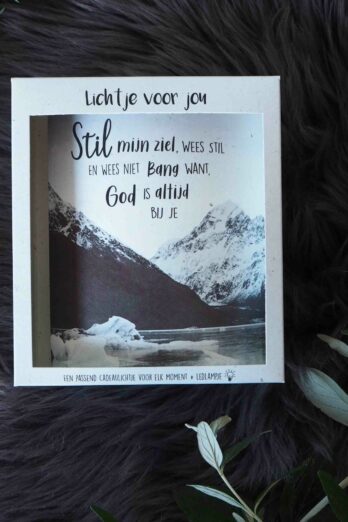 Lichtje voor jou
Stil mijn ziel, WEES STIL
EN WEES NIET Bang WANT,
God IS altijd
BIJ JE
EEN PASSEND CADEAULICHTJE VOOR ELK MOMENT + LEDLAMPJE